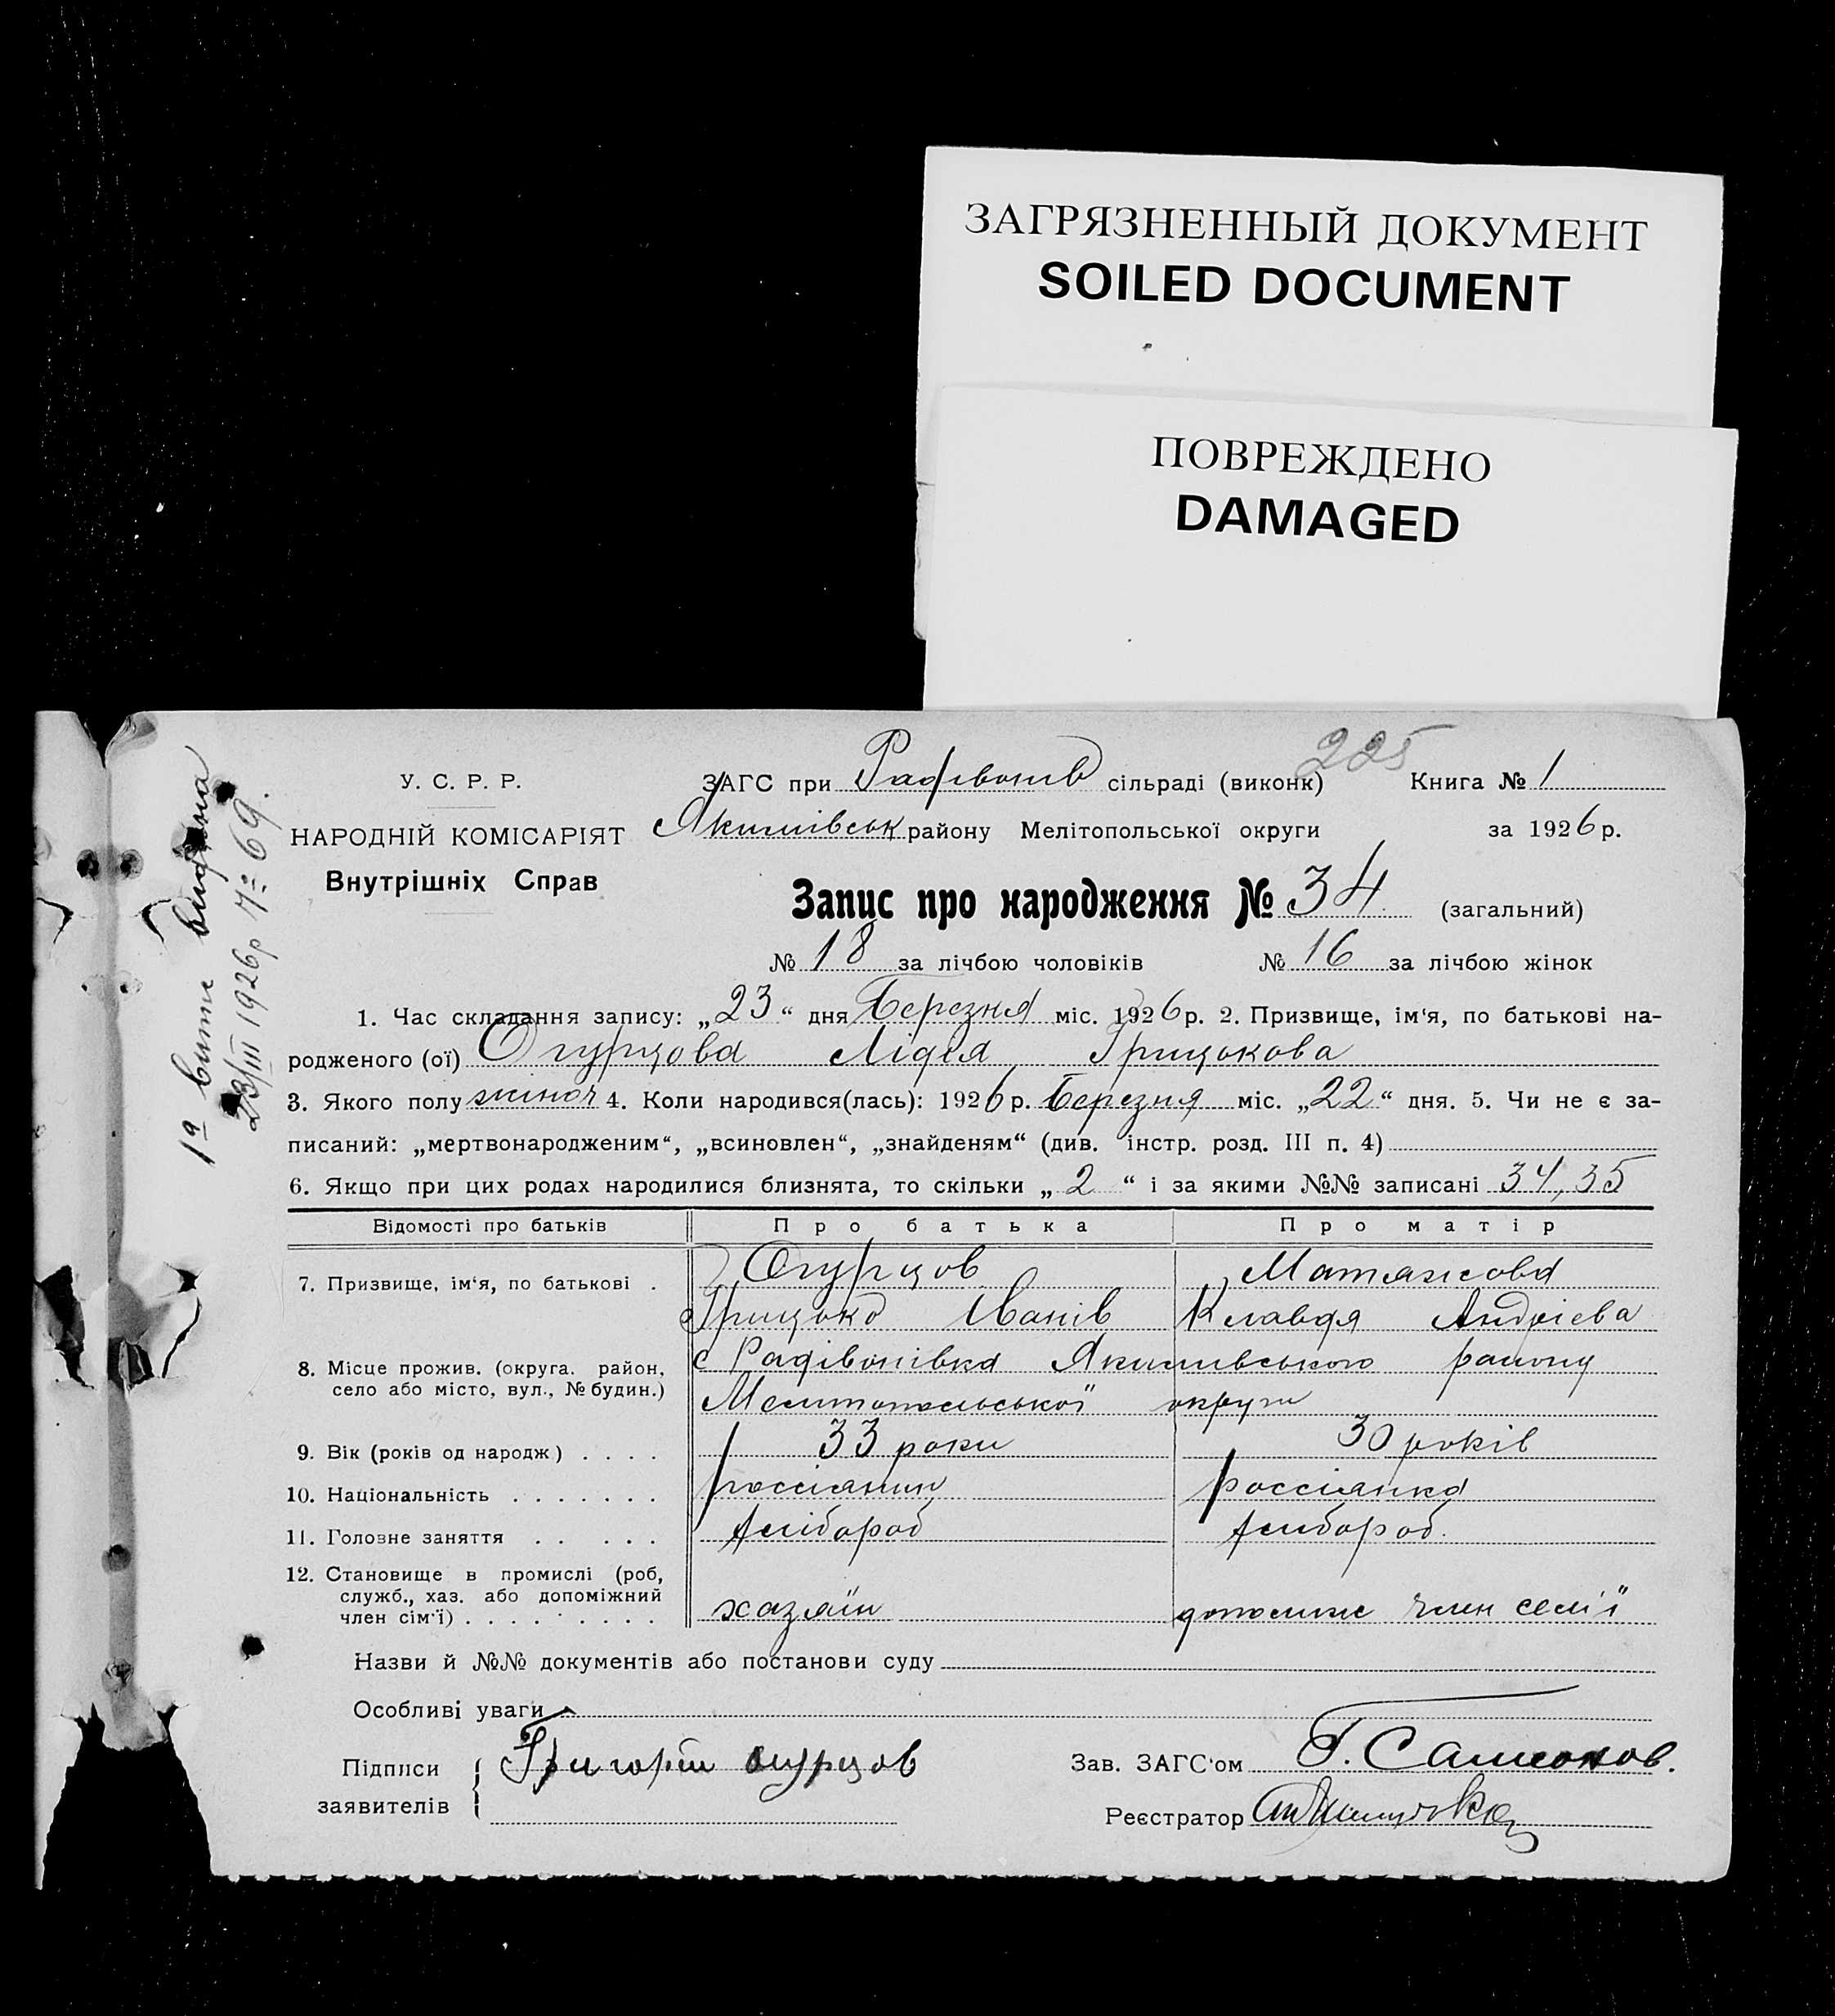 ЗАГРЯЗНЕННЫЙ ДОКУМЕНТ
SOILED DOCUMENT
ПОВРЕЖДЕНО
DAMAGED
225
У. С. Р. Р.
ЗАГС при Радівонів сільраді (виконк) Книга № 1
НАРОДНІЙ КОМІСАРІЯТ
Якимівськ району Мелітопольської округи за 1926 р.
Внутрішніх Справ
Запис про народження № 34 (загальний)
№ 18 за лічбою чоловіків № 16 за лічбою жінок
1. Час складання запису: „23“ дня Березня міс. 1926 р. 2. Призвище, ім‘я, по батькові на-
родженого (ої) Огурцова Лідія Грицькова
3. Якого полу жіноч 4. Коли народився(лась): 1926 р. Березня міс. „22“ дня. 5. Чи не є за-
писаний: „мертвонародженим“, „всиновлен“, „знайденям“ (див. інстр. розд. III п. 4)
6. Якщо при цих родах народилися близнята, то скільки „2“ і за якими №№ записані 34, 35
Відомості про батьків Про батька Про матір
7. Призвище, ім‘я, по батькові . Огурцов Матяжова
Грицько Іванів Клавдя Андрієва
8. Місце прожив. (округа. район, с Радівонівка Якимівського району
село або місто, вул., № будин.)
Мелитопольської округи
9. Вік (років од народж) . . . . 33 роки 30 років
10. Національність . . . . . . . россіянин россіянка
11. Головне заняття . . . . . хлібороб хлібороб.
12. Становище в промислі (роб,
служб., хаз. або допоміжний
член сім‘ї) . . . . . . . . . хазяїн допоміжн член семї
Назви й №№ документів або постанови суду
Особливі уваги
Підписи
заявителів
Григорій Огурцов
Зав. ЗАГС‘ом Г. Самсонов.
Реєстратор
1а випис видана
23/III 1926р 7= 69.